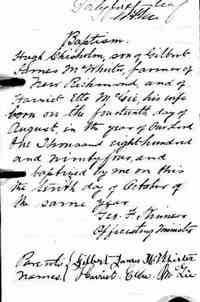 Baptism.
Hugh Chisholm, son of Gilbert
James McWhirter, farmer of
New Richmond, and of
Harriet Etta McGie, his wife
born on the fourteenth day of
August, in the year of Our Lord
One Thousand eight hundred
and ninety four, and
baptized by me on this
the tenth day of October of
the same year
Geo. F.
Officiating Minister
Parents' { Gilbert James McWhirter
names. { Harriet